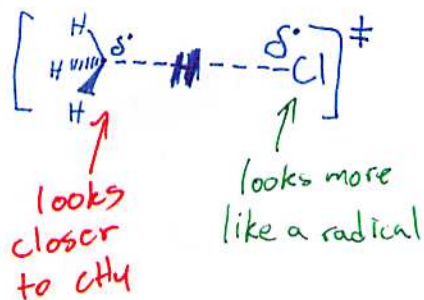 H
δ•
δ•
‡
H
H
Cl
H
looks
closer
to CH4
looks more
like a radical